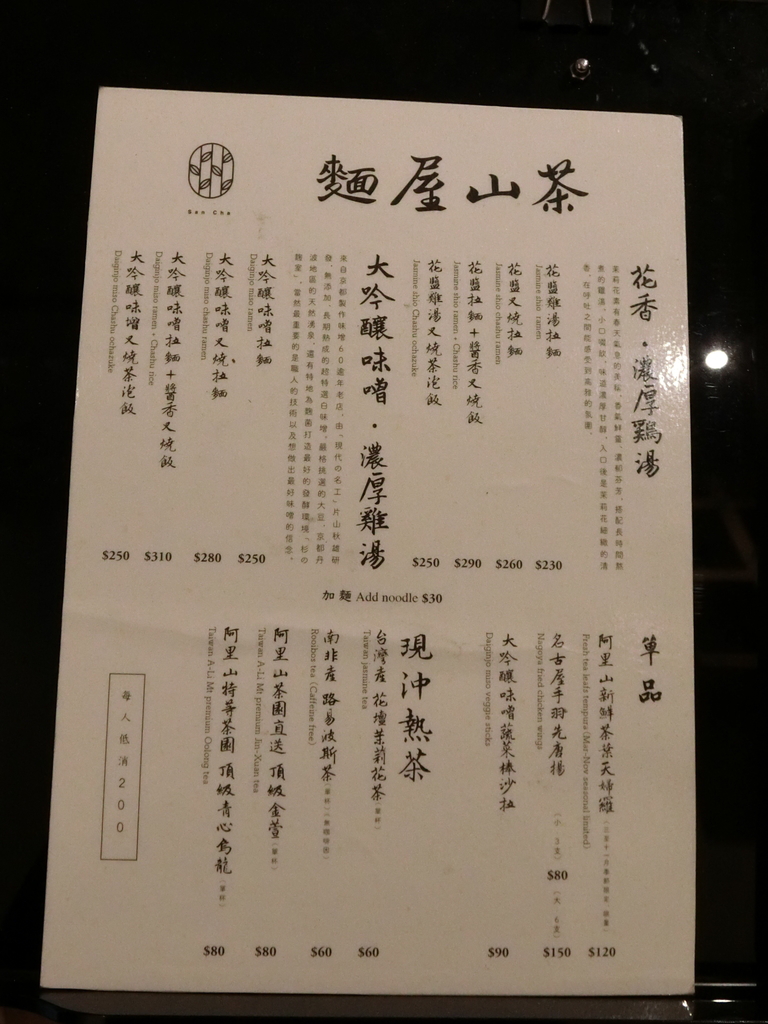 麵屋山茶
San Cha
花香・濃厚鷄湯
茉莉花素有春天氣息的美稱，香氣鮮靈、濃郁芬芳，搭配長時間熬
煮的雞湯，小口啜飲，味道濃厚甘醇，入口後是茉莉花細緻的清
香，在呼吸之間能感受到高雅的氛圍。
花鹽雞湯拉麵
Jasmine shio ramen
$230
花鹽叉燒拉麵
Jasmine shio chashu ramen
$260
花鹽拉麵+醬香叉燒飯
Jasmine shio ramen + Chashu rice
$290
花鹽雞湯叉燒茶泡飯
Jasmine shio Chashu ochazuke
$250
大吟釀味噌・濃厚雞湯
來自京都製作味噌60逾年老店，由「現代の名工」片山秋雄研
發，無添加、長期熟成的超特選白味噌。嚴格挑選的大豆、京都丹
波地區的天然湧泉，還有特地為麴菌打造最好的發酵環境「杉の
麴室」，當然最重要的是職人的技術以及想做出最好味噌的信念。
大吟釀味噌拉麵
Daiginjo miso ramen
$250
大吟釀味噌叉燒拉麵
Daiginjo miso chashu ramen
$280
大吟釀味噌拉麵+醬香叉燒飯
Daiginjo miso ramen + Chashu rice
$310
大吟釀味噌叉燒茶泡飯
Daiginjo miso Chashu ochazuke
$250
加麵 Add noodle $30
單品
阿里山新鮮茶葉天婦羅
Fresh tea leafs tempura (Mar-Nov seasonal limited)
$120
名古屋手羽先唐揚
Nagoya fried chicken wings
(小 3支)
$80
(大 6支)
$150
大吟釀味噌蔬菜棒沙拉
Daiginjo miso veggie sticks
$90
現沖熱茶
台灣產 花壇茉莉花茶(單杯)
Taiwan jasmine tea
$60
南非產 路易波斯茶(單杯)(無咖啡因)
Rooibos tea (Caffeine free)
$60
阿里山茶園直送 頂級金萱(單杯)
Taiwan A-Li Mt premium Jin-Xuan tea
$80
阿里山特等茶園 頂級青心烏龍(單杯)
Taiwan A-Li Mt premium Oolong tea
$80
每人低消200